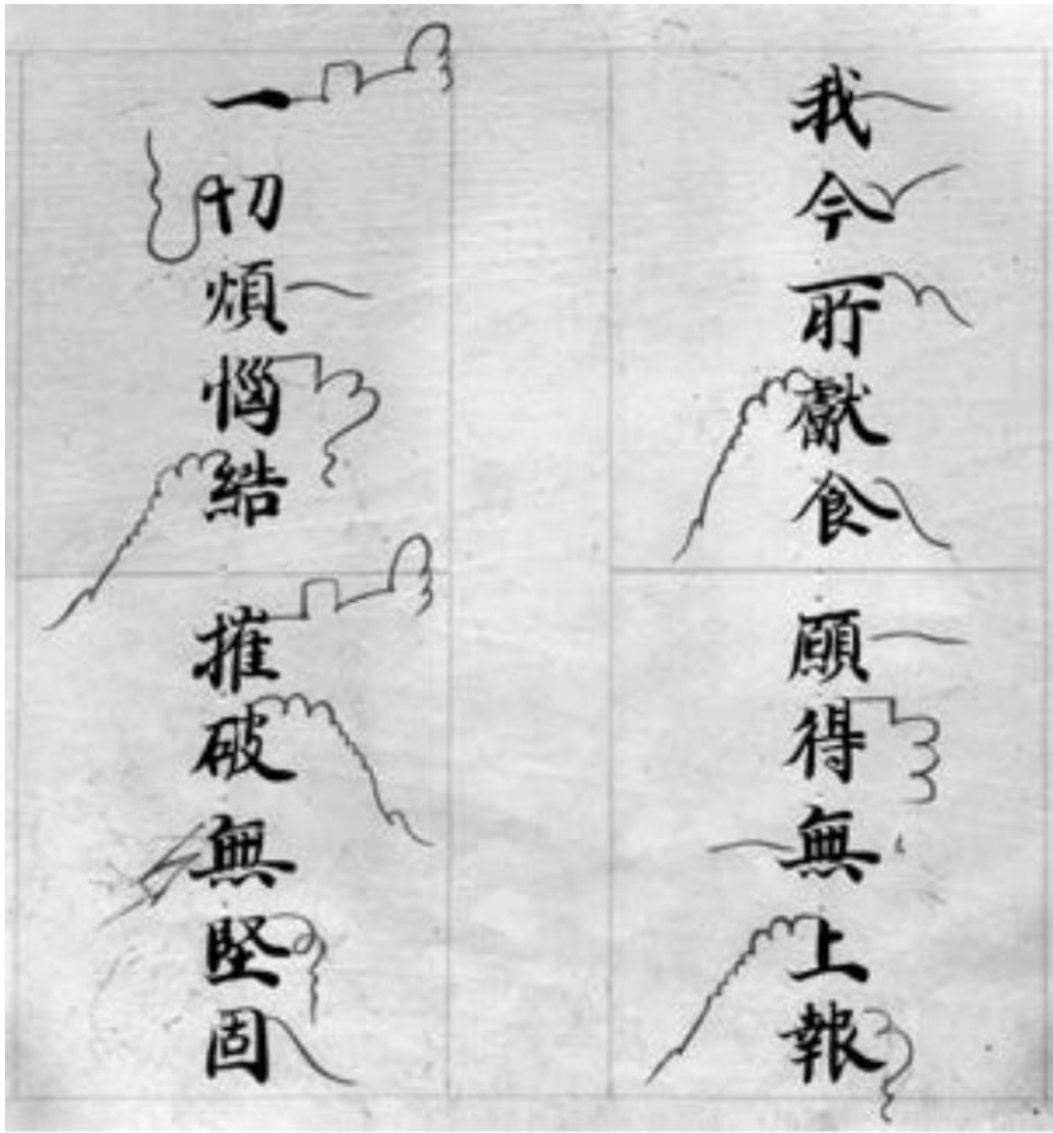 我今所獻食
願得無上報
一切煩惱結
摧破無堅固